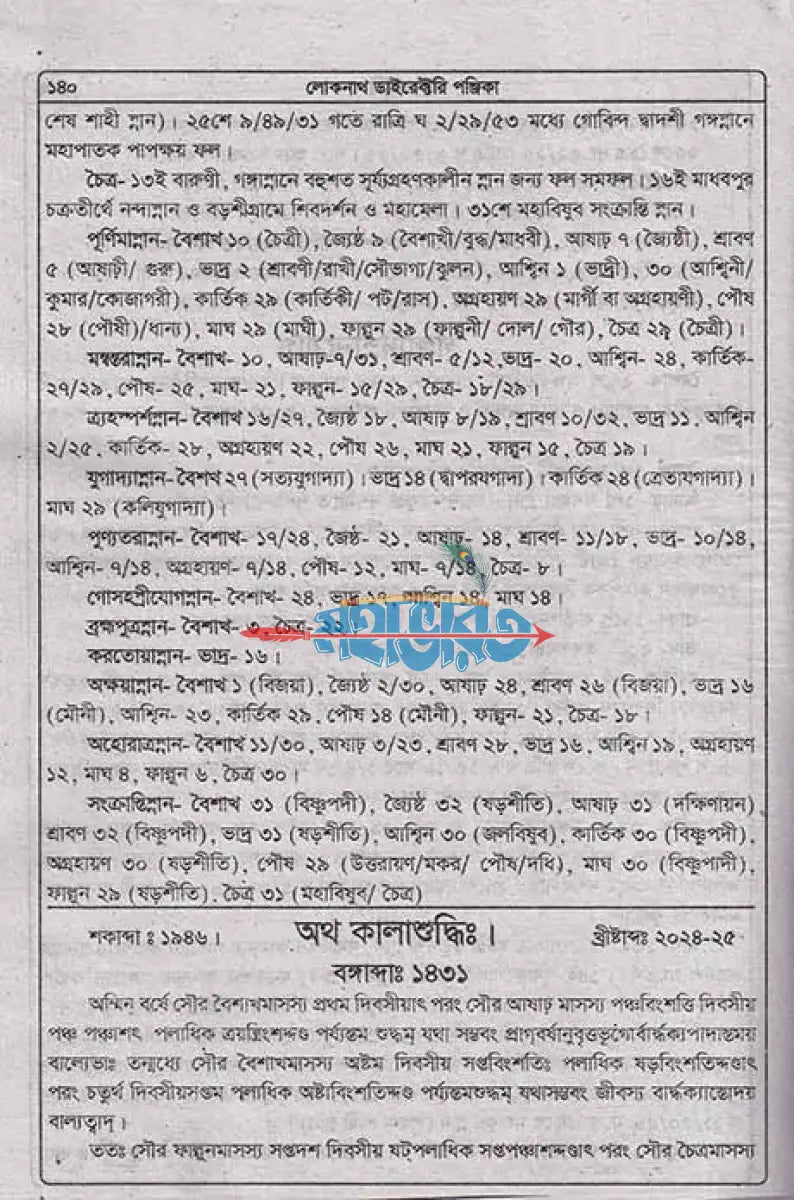 ১৪০ লোকনাথ ডাইরেক্টরি পঞ্জিকা
শেষ শাহী স্নান)। ২৫শে ৯/৪৯/৩১ গতে রাত্রি ঘ ২/২৯/৫৩ মধ্যে গোবিন্দ দ্বাদশী গঙ্গস্নানে
মহাপাতক পাপক্ষয় ফল।
চৈত্র- ১৩ই বারুণী, গঙ্গাস্নানে বহুশত সূর্য্যগ্রহণকালীন স্নান জন্য ফল সমফল। ১৬ই মাধবপুর
চক্রতীর্থে নন্দাস্নান ও বড়শীগ্রামে শিবদর্শন ও মহামেলা। ৩১শে মহাবিষুব সংক্রান্তি স্নান।
পূর্ণিমাস্নান- বৈশাখ ১০ (চৈত্রী), জ্যৈষ্ঠ ৯ (বৈশাখী/বুদ্ধ/মাধবী), আষাঢ় ৭ (জ্যৈষ্ঠী), শ্রাবণ
৫ (আষাঢ়ী/ গুরু), ভাদ্র ২ (শ্রাবণী/রাখী/সৌভাগ্য/ঝুলন), আশ্বিন ১ (ভাদ্রী), ৩০ (আশ্বিনী/
কুমার/কোজাগরী), কার্তিক ২৯ (কার্তিকী/ পট/রাস), অগ্রহায়ণ ২৯ (মার্গী বা অগ্রহায়ণী), পৌষ
২৮ (পৌষী)/ধান্য), মাঘ ২৯ (মাঘী), ফাল্গুন ২৯ (ফাল্গুনী/ দোল/ গৌর), চৈত্র ২৯ (চৈত্রী)।
মন্বন্তরাস্নান- বৈশাখ- ১০, আষাঢ়-৭/৩১, শ্রাবণ- ৫/১২,ভাদ্র- ২০, আশ্বিন- ২৪, কার্তিক-
২৭/২৯, পৌষ- ২৫, মাঘ- ২১, ফাল্গুন- ১৫/২৯, চৈত্র- ১৮/২৯।
ত্র্যহস্পর্শস্নান- বৈশাখ ১৬/২৭, জ্যৈষ্ঠ ১৮, আষাঢ় ৮/১৯, শ্রাবণ ১০/৩২, ভাদ্র ১১, আশ্বিন
২/২৫, কার্তিক- ২৮, অগ্রহায়ণ ২২, পৌষ ২৬, মাঘ ২১, ফাল্গুন ১৫, চৈত্র ১৯।
যুগাদ্যাস্নান- বৈশখ ২৭ (সত্যযুগাদ্যা)। ভাদ্র ১৪ (দ্বাপরযগাদ্য)। কার্তিক ২৪ (ত্রেতাযগাদ্যা)।
মাঘ ২৯ (কলিযুগাদ্যা)।
পুণ্যতরাস্নান- বৈশাখ- ১৭/২৪, জৈষ্ঠ- ২১, আষাঢ়- ১৪, শ্রাবণ- ১১/১৮, ভদ্র- ১০/১৪,
আশ্বিন- ৭/১৪, অগ্রহায়ণ- ৭/১৪, পৌষ- ১২, মাঘ- ৭/১৪, চৈত্র- ৮।
গোসহস্রীযোগস্নান- বৈশাখ- ২৪, ভাদ্র ১৭, আশ্বিন ১৪, মাঘ ১৪।
ব্রহ্মপুত্রস্নান- বৈশাখ- ৩, চৈত্র- ২২।
মহাভারত
করতোয়াস্নান- ভাদ্র- ১৬।
অক্ষয়াস্নান- বৈশাখ ১ (বিজয়া), জ্যৈষ্ঠ ২/৩০, আষাঢ় ২৪, শ্রাবণ ২৬ (বিজয়া), ভদ্র ১৬
(মৌনী), আশ্বিন- ২৩, কার্তিক ২৯, পৌষ ১৪ (মৌনী), ফাল্গুন- ২১, চৈত্র- ১৮।
অহোরাত্রস্নান- বৈশাখ ১১/৩০, আষাঢ় ৩/২৩, শ্রাবণ ২৮, ভাদ্র ১৬, আশ্বিন ১৯, অগ্রহায়ণ
১২, মাঘ ৪, ফাল্গুন ৬, চৈত্র ৩০।
সংক্রান্তিস্নান- বৈশাখ ৩১ (বিষ্ণুপদী), জ্যৈষ্ঠ ৩২ (ষড়শীতি), আষাঢ় ৩১ (দক্ষিণায়ন)
শ্রাবণ ৩২ (বিষ্ণুপদী), ভাদ্র ৩১ (ষড়শীতি), আশ্বিন ৩০ (জলবিষুব), কার্তিক ৩০ (বিষ্ণুপদী),
অগ্রহায়ণ ৩০ (ষড়শীতি), পৌষ ২৯ (উত্তরায়ণ/মকর/ পৌষ/দধি), মাঘ ৩০ (বিষ্ণুপাদী),
ফাল্গুন ২৯ (ষড়শীতি). চৈত্র ৩১ (মহাবিষুব/ চৈত্র)
শকাব্দা ঃ ১৯৪৬। অথ কালাশুদ্ধিঃ। খ্রীষ্টাব্দঃ ২০২৪-২৫
বঙ্গাব্দাঃ ১৪৩১
অস্মিন্ বর্ষে সৌর বৈশাখমাসস্য প্রথম দিবসীয়াৎ পরং সৌর আষাঢ় মাসস্য পঞ্চবিংশত্তি দিবসীয়
পঞ্চ পঞ্চাশৎ পলাধিক ত্রয়স্ত্রিংশদ্দণ্ড পর্য্যন্তম শুদ্ধম্ যথা সম্ভবং
বাল্যেভ্যঃ তন্মধ্যে সৌর বৈশাখমাসস্য অষ্টম দিবসীয় সপ্তবিংশতিঃ পলাধিক ষড়বিংশতিদ্দণ্ডাৎ
পরং চতুর্থ দিবসীয়সপ্তম পলাধিক অষ্টাবিংশতিদ্দণ্ড পর্য্যন্তমশুদ্ধম্ যথাসম্ভবং জীবস্য বার্দ্ধক্যাস্তোদয়
বাল্যত্বাদ্।
ততঃ সৌর ফাল্গুনমাসস্য সপ্তদশ দিবসীয় ষট্পলাধিক সপ্তপঞ্চাশদ্দণ্ডাৎ পরং সৌর চৈত্রমাসস্য